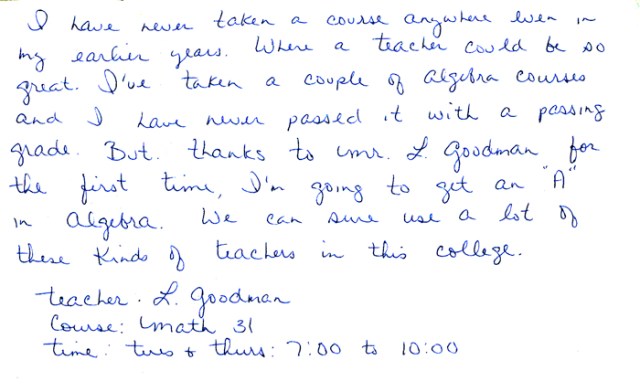 I have never taken a course anywhere even in
my earlier years. Where a teacher could be so
great. I've taken a couple of algebra courses
and I have never passed it with a passing
grade. But. thanks to mr. L. Goodman for
the first time, I'm going to get an "A"
in algebra. We can sure use a lot of
these kinds of teachers in this college.
teacher. L. Goodman
Course: math 31
time: tues & thurs: 7:00 to 10:00